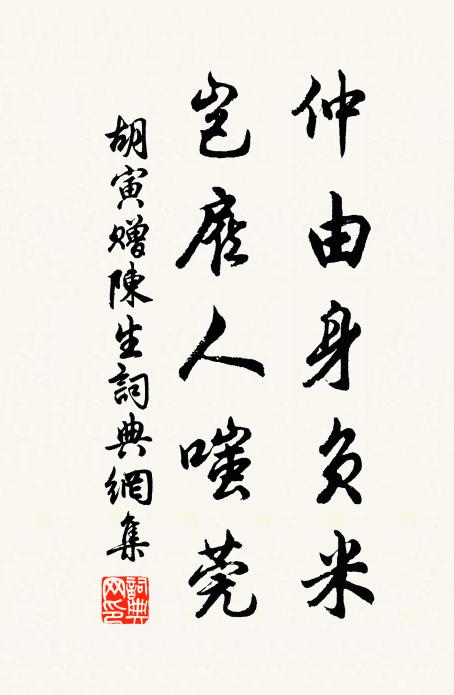 仲由身負米
豈顧人嗤莞
胡寅贈陳生詞典網集
詞典網印